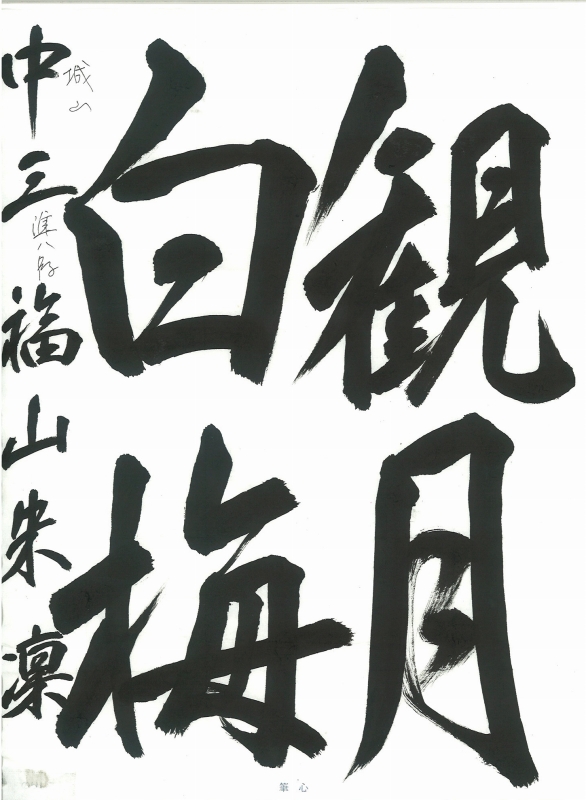 観月
白梅
中三 福山朱凜
城山
準八段
筆心